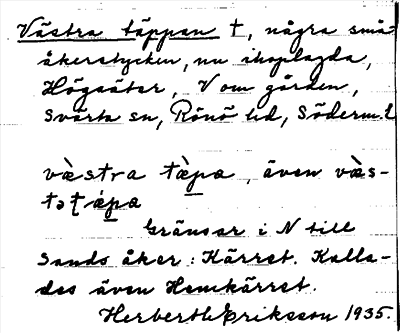 Västra täppan †, några små
åkerstycken, nu ihoplagda,
Högsätar, V om gården,
Svärta sn, Rönö hd, Söderm.l
væ̀stra tæ̀pa, även væ̀s-
tə tæ̀pa
Gränsar i N till
Sands åker: Kärret. Kalla-
des även Hemkärret.
Herberth Eriksson 1935.